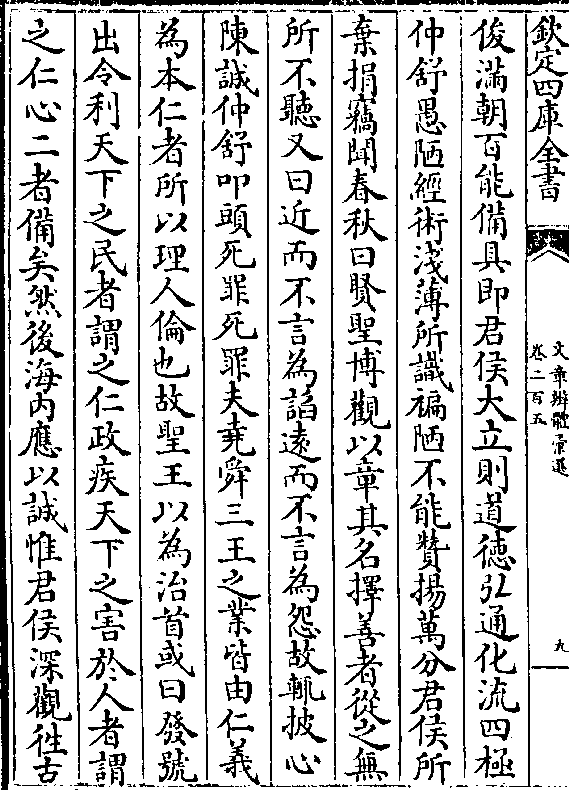 欽定四庫全書
文章辨體彙選
卷二百五
九
俊滿朝百能備具即君侯大立則道德弘通化流四極
仲舒愚陋經術淺薄所識褊陋不能贊揚萬分君侯所
棄捐竊聞春秋曰賢聖博觀以章其名擇善者從之無
所不聽又曰近而不言為諂遠而不言為怨故輒披心
陳誠仲舒叩頭死罪死罪夫堯舜三王之業皆由仁義
為本仁者所以理人倫也故聖王以為治首或曰發號
出令利天下之民者謂之仁政疾天下之害於人者謂
之仁心二者備矣然後海内應以誠惟君侯深觀徃古